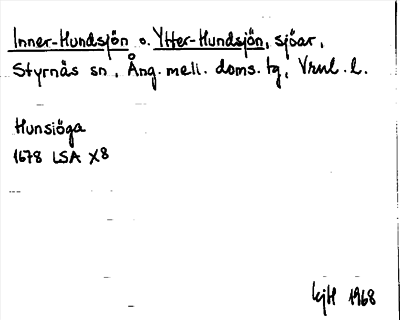 Inner-Hundsjön o. Ytter-Hundsjön, sjöar,
Styrnäs sn, Ång. mell. doms. tg, Vrnl. l.
Hunsiöga
1678 LSA X8
1968